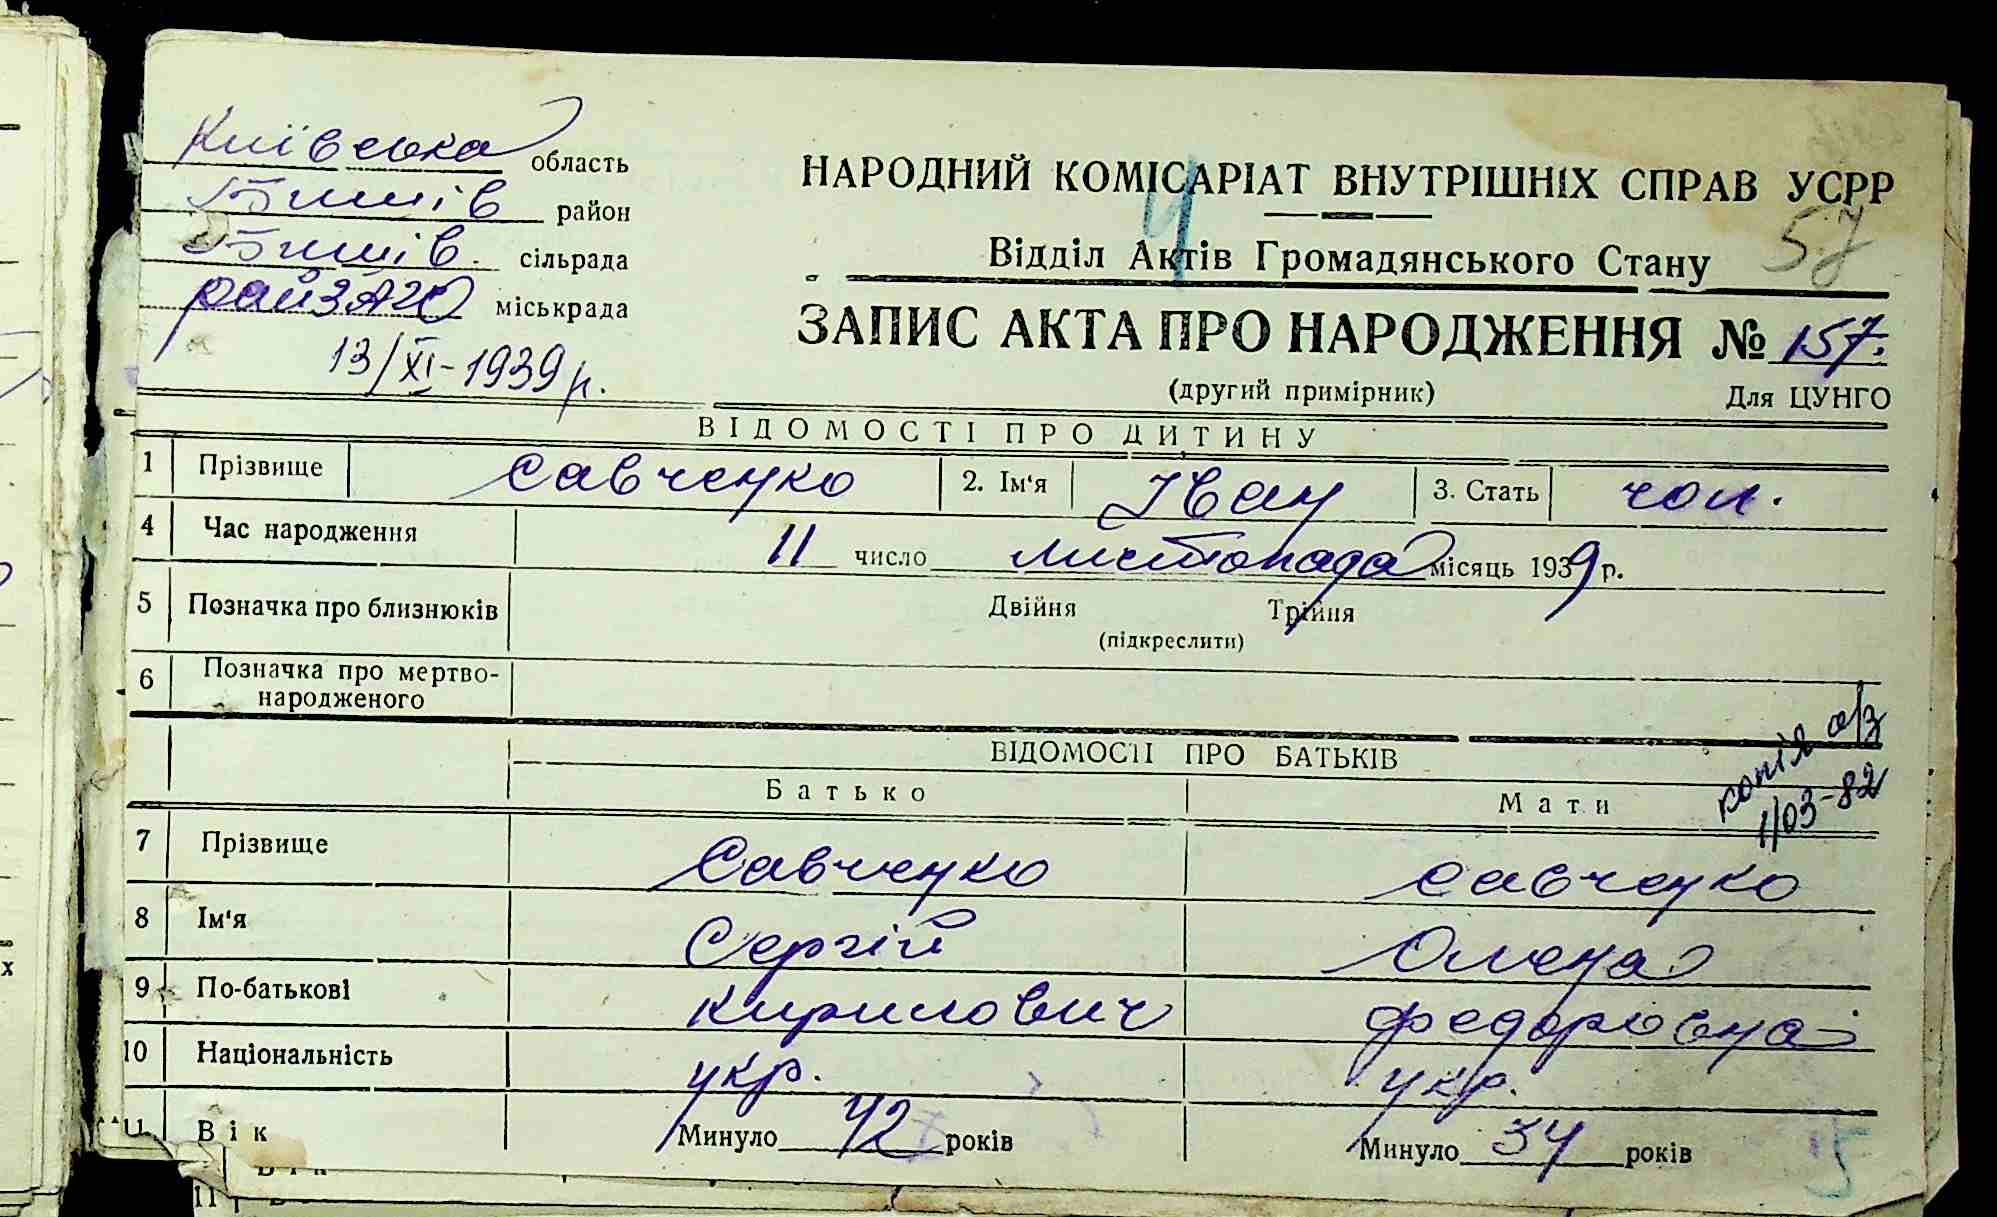 Київська область
Бишів район
Бишів. сільрада
райЗАГС міськрада
13/XI-1939 р.
НАРОДНИЙ КОМІСАРІАТ ВНУТРІШНІХ СПРАВ УСРР
57
Відділ Актів Громадянського Стану
ЗАПИС АКТА ПРО НАРОДЖЕННЯ № 157.
(другий примірник) Для ЦУНГО
ВІДОМОСТІ ПРО ДИТИНУ
1 Прізвище Савченко 2. Ім'я Іван 3. Стать чол.
4 Час народження 11 число листопада місяць 1939 р.
5 Позначка про близнюків Двійня Трійня
(підкреслити)
6 Позначка про мертво-
народженого
копія а/з
1/03-82
ВІДОМОСТІ ПРО БАТЬКІВ
Батько Мати
7 Прізвище Савченко Савченко
8 Ім'я Сергій Олена
9 По-батькові Кирилович Федорівна
10 Національність укр. укр.
11 Вік Минуло 42 років Минуло 34 років
5
11